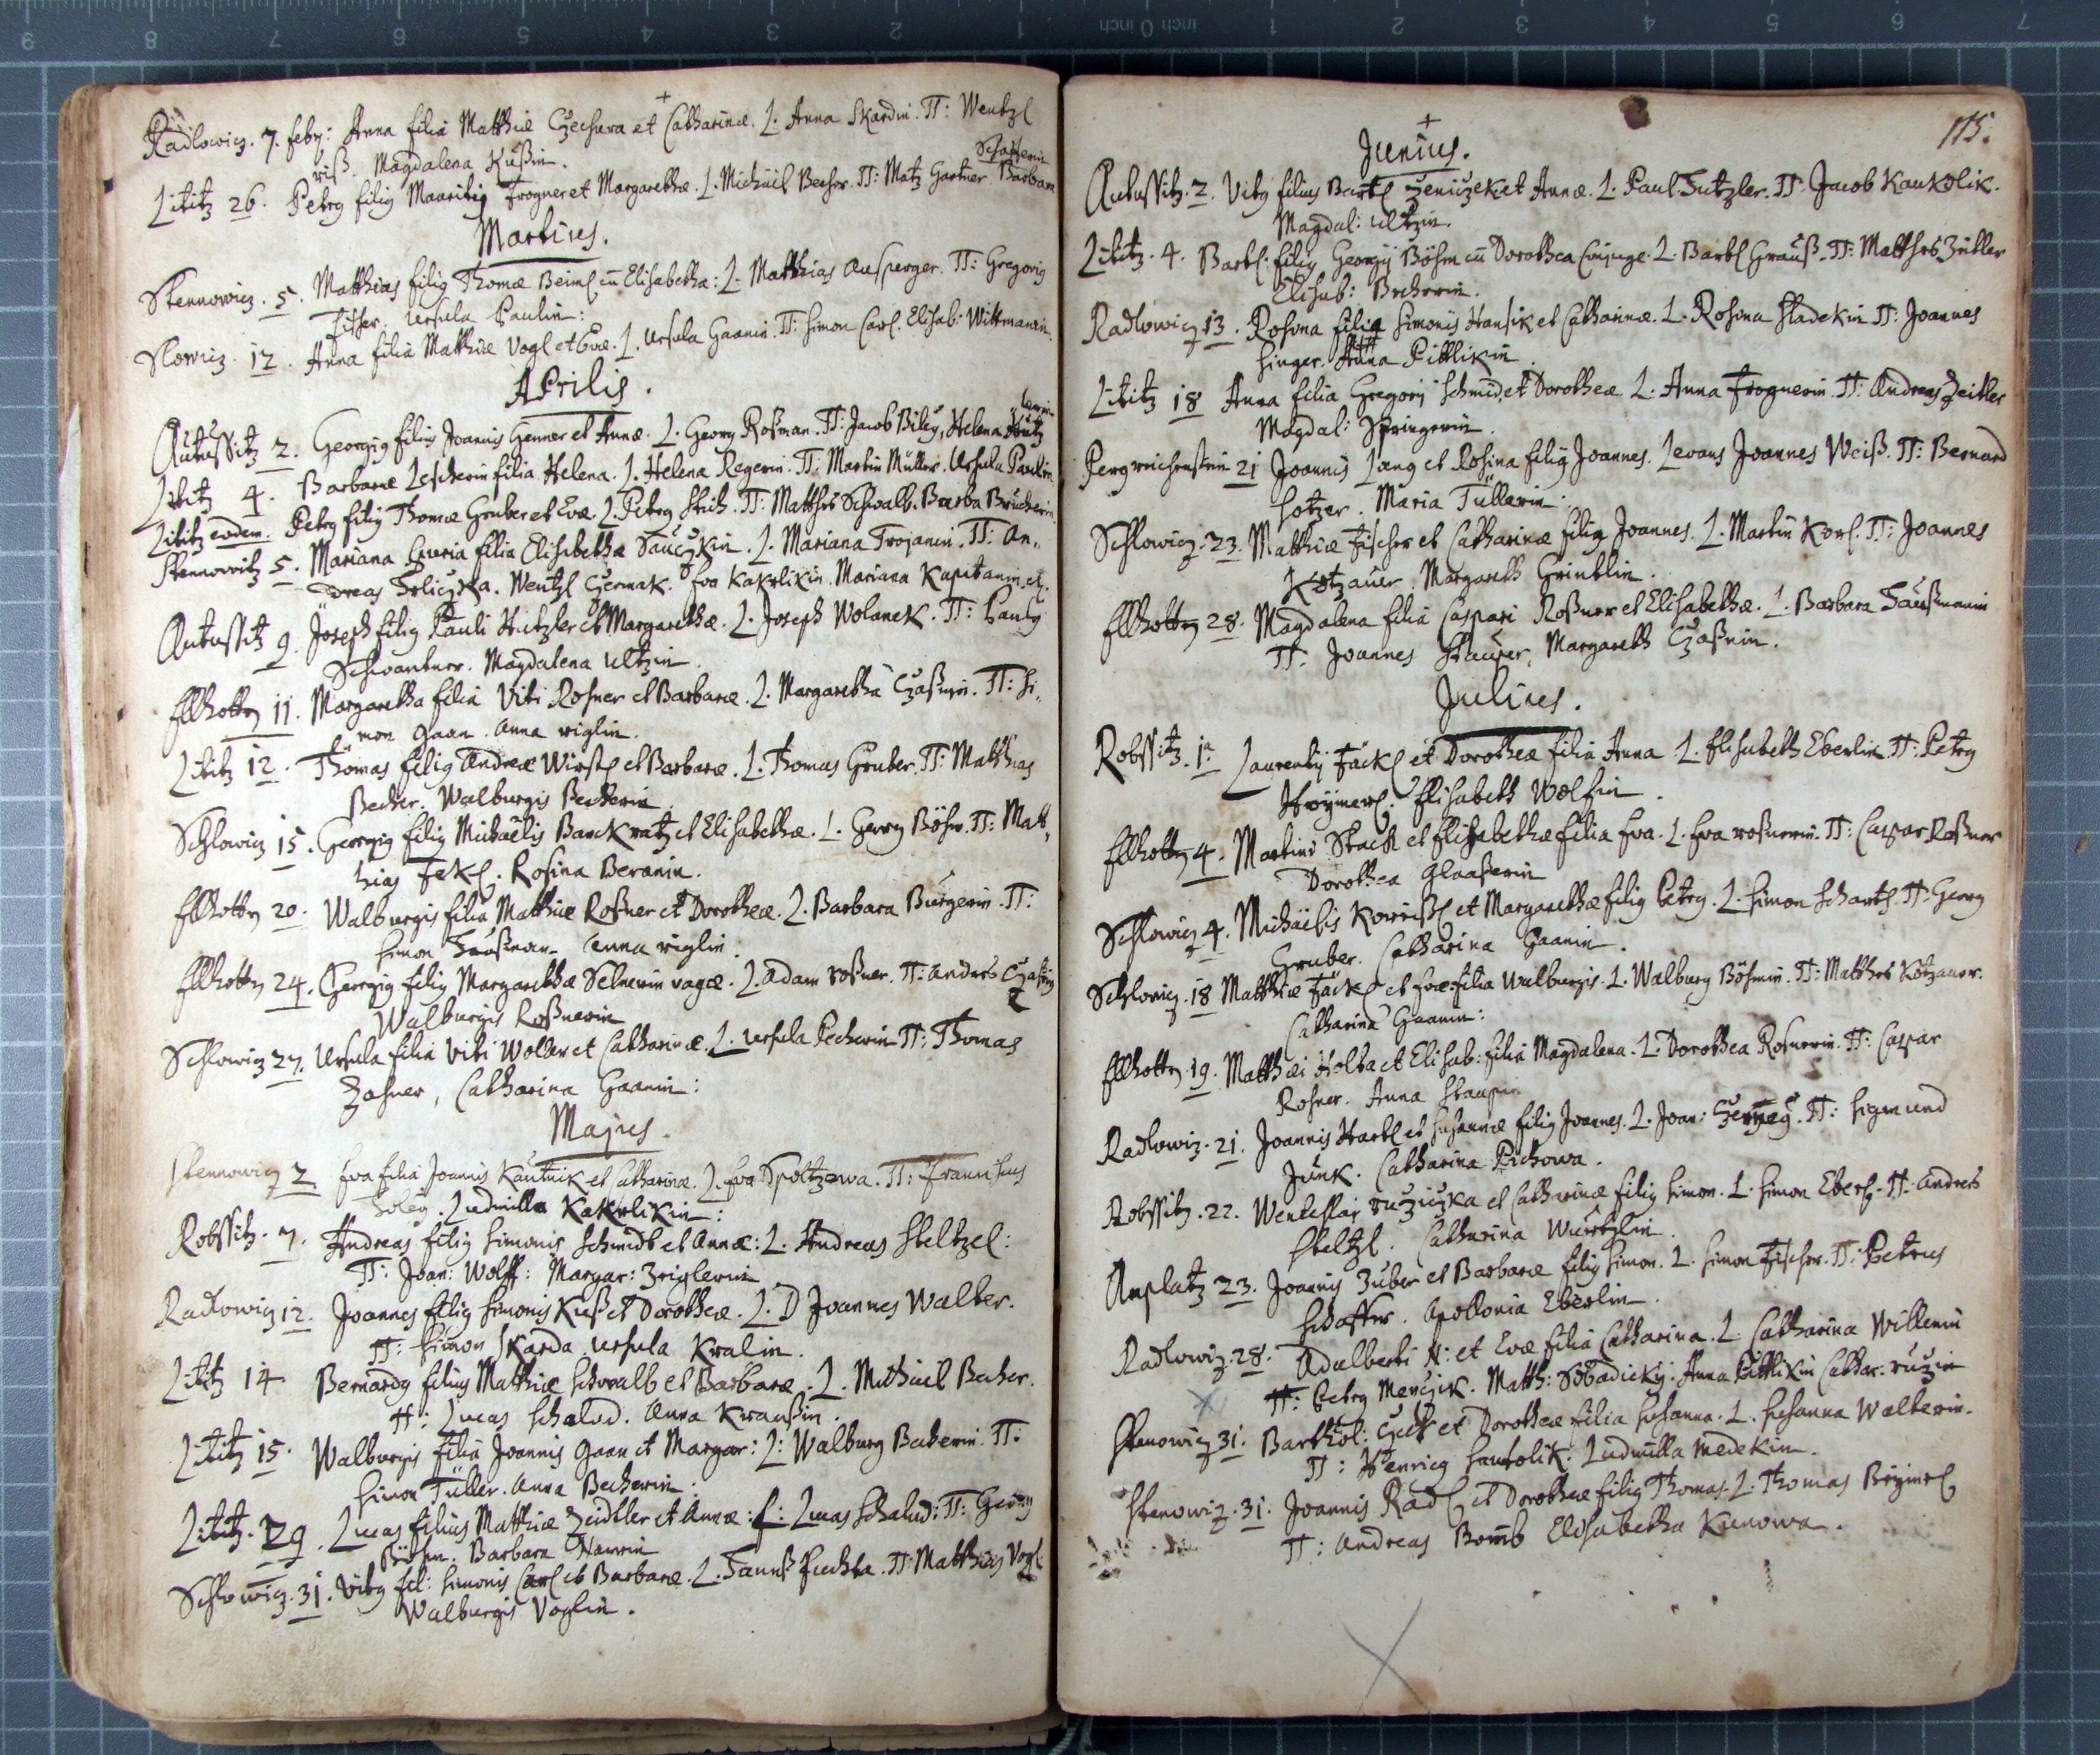 Radlowicz. 7. feby: Anna filia Matthiæ Czechura et Catharinæ. L. Anna Skardin. TT: Wentzl
riß. Magdalena Kußin.
Schafferin
Lititz 26. Petrg filig Mauritij Frogner et Margarethæ. L. Michäel Becher. TT: Matz Gartner. Barbara
Martius.
Stennowicz. 5. Matthias filig Thomæ Beiml cu Elisabetha: L. Matthias Ausperger. TT: Gregorig
Fischer. Ursula Paulin:
Slowicz. 12. Anna filia Matthiæ Vogl et Evæ. L. Ursula Gaanin. TT: Simon Carl. Elisab: Wittmanin.
Aprilis.
Autussitz 2. Georgig filig Joannis Genner et Annæ. L. Georg Roßman. TT: Jacob Bileg, Helena
Lititz 4. Barbaræ Lescherin filia Helena. L. Helena Regerin. TT: Martin Müller. Ursula Paulin
Lititz eodem. Petrg filig Thomæ Gruber et Evæ. L. Petrg Stich. TT: Matthes Schwalb. Barba Brücherin
Stennowitz 5. Mariana filia Elisabethæ Sauczkin. L. Mariana Trojanin. TT: An„
dreas Wentzl Czermak. Eva Kakrlikin. Mariana Kapitanin etc.
Autussitz 9. Joseph filig Pauli Hützler et Margarethæ. L. Joseph Wolanek. TT: Paulg
Schwantner. Magdalena Ultzin.
Ellhotten 11. Margaretha filia Viti Rosner et Barbaræ. L. Margaretha Czaßnin. TT: Si„
mon Gaan. Anna riglin.
Lititz 12. Thomas filig Andreæ Würstl et Barbaræ. L. Thomas Gruber. TT: Matthias
Becher. Walburgis Becherin.
Schlowicz 15. Georgig filig Michaelis Banckratz et Elisabethæ. L. Georg Böhm. TT: Matt„
hias Fekl. Rosina Beranin.
Ellhotten 20. Walburgis filia Matthiæ Roßner et Dorotheæ. L. Barbara Burgerin. TT:
Simon Anna riglin.
Ellhotten 24. Georgig filig Margarethæ Selnerin vagæ. L. Adam roßner. TT: Andres
Walburgis Roßnerin
Schlowicz 27. Ursula filia Viti Woller et Catharinæ. L. Ursula Pecherin. TT: Thomas
Zahner, Catharina Gaanin:
Majus.
Stennowicz 2. Eva filia Joannis Kautnik et Catharinæ. L. Eva Spoltzowa. TT:
Ludmilla Kakrlikin:
Robssitz. 7. Andreas filig Simonis Schmidt et Annæ: L. Andreas Steltzel:
TT: Joan: Wolff: Margar: Zriglerin
Radlowicz 12. Joannes filig Simonis Kuß et Dorotheæ. L. D Joannes Walter.
TT: Simon Skarda. Ursula Kralin.
Lititz 14. Bernardg filius Matthiæ Schwalb et Barbaræ. L. Michäel Becher.
TT: Lucas Schalud. Anna Kraußin.
Lititz 15. Walburgis filia Joannis Gaan et Margar: L: Walburg Becherin. TT:
Simon Tüller. Anna Becherin:
Lititz. 29. Lucas filius Matthiæ Zeidtler et Annæ: L: Lucas Schalud: TT: Georg
Böhm. Barbara
Schlowicz. 31. Vitg fil: Simonis Carl et Barbaræ. L. Hanß Fuchta. TT. Matthias Vogl.
Walburgis Voglin.
115.
Junius.
Autussitz. 2. Vitg filius Bartl Zeniczek et Annæ. L. Paul Hutzler. TT. Jacob Kaukolik.
Magdal: Ultzin.
Lititz. 4. Bartl: filig Georgij Böhm cu Dorothea conjuge. L. Bartl Grauß. TT: Matthes Zeitler
Elisab: Becherin.
Radlowicz 13. Rosina filia Simonis Hansik et Catharinæ. L. Rosina Sladekin TT: Joannes
Singer. Anna Pittlikin.
Lititz 18 Anna filia Gregorij Schmid et Dorotheæ. L. Anna Frognerin. TT: Andreas Zeitler
Magdal: Springerin.
Pergreichenstein 21 Joannis Lang et Rosina filig Joannes. Levans Joannes Weiß. TT: Bernard
Hotzer. Maria Tüllerin.
Schlowicz. 23. Matthiæ Fischer et Catharinæ filig Joannes. L. Martin Korl. TT: Joannes
Kotzauer. Margareth Grindlin.
Ellhotten 28. Magdalena filia Caspari Roßner et Elisabethæ. L. Barbara Haußmanin
TT. Joannes Stauper, Margareth Czaßnin.
Julius.
Robssitz. 1a Laurentij Fäckl et Dorotheæ filia Anna. L. Elisabeth Eberlin. TT: Petrg
Elisabeth Wolfin.
Ellhotten 4. Martini Stach et Elisabethæ filia Eva. L. Eva roßnerin. TT: Caspar Roßner
Dorothea Glaaßerin
Schlowicz 4. Michäelis et Margarethæ filig Petrg. L. Simon Schartl. TT: Georg
Gruber. Catharina Gaanin.
Schlowicz. 18 Matthiæ Fäckl et Evæ filia Walburgis. L. Walburg Böhmin. TT: Matthes Kotzauer.
Catharina Gaanin:
Ellhotten. 19. Matthæi Holba et Elisab: filia Magdalena. L. Dorothea Rosnerin. TT: Caspar
Rosner. Anna
Radlowicz. 21. Joannis Hartl et Susannæ filig Joannes. L. Joan: TT: Sigmund
Junk. Catharina Pichowa.
Robssitz. 22. Wenceslai ruziczka et Catharinæ filig Simon. L. Simon Eberl. TT. Andres
Steltzl. Catharina Würtzlin.
Auplatz 23. Joannis Zuber et Barbaræ filig Simon. L. Simon Fischer. TT: Petrus
Schaffer. Apollonia Eberlin.
Radlowicz. 28. Adalberti N: et Evæ filia Catharina. L. Catharina Willemin
TT: Petrg Menczik. Matth: Anna Pittlikin Cathar: ruzin
Stenowicz 31. Barthol: et Dorotheæ filia Susanna. L. Susanna Walterin.
TT: Henricg Ludmilla Medekin.
Stenowicz. 31. Joannis Radl et Dorotheæ filig Thomas. L. Thomas
TT: Andreas Bomb Elisabetha Kunowa.